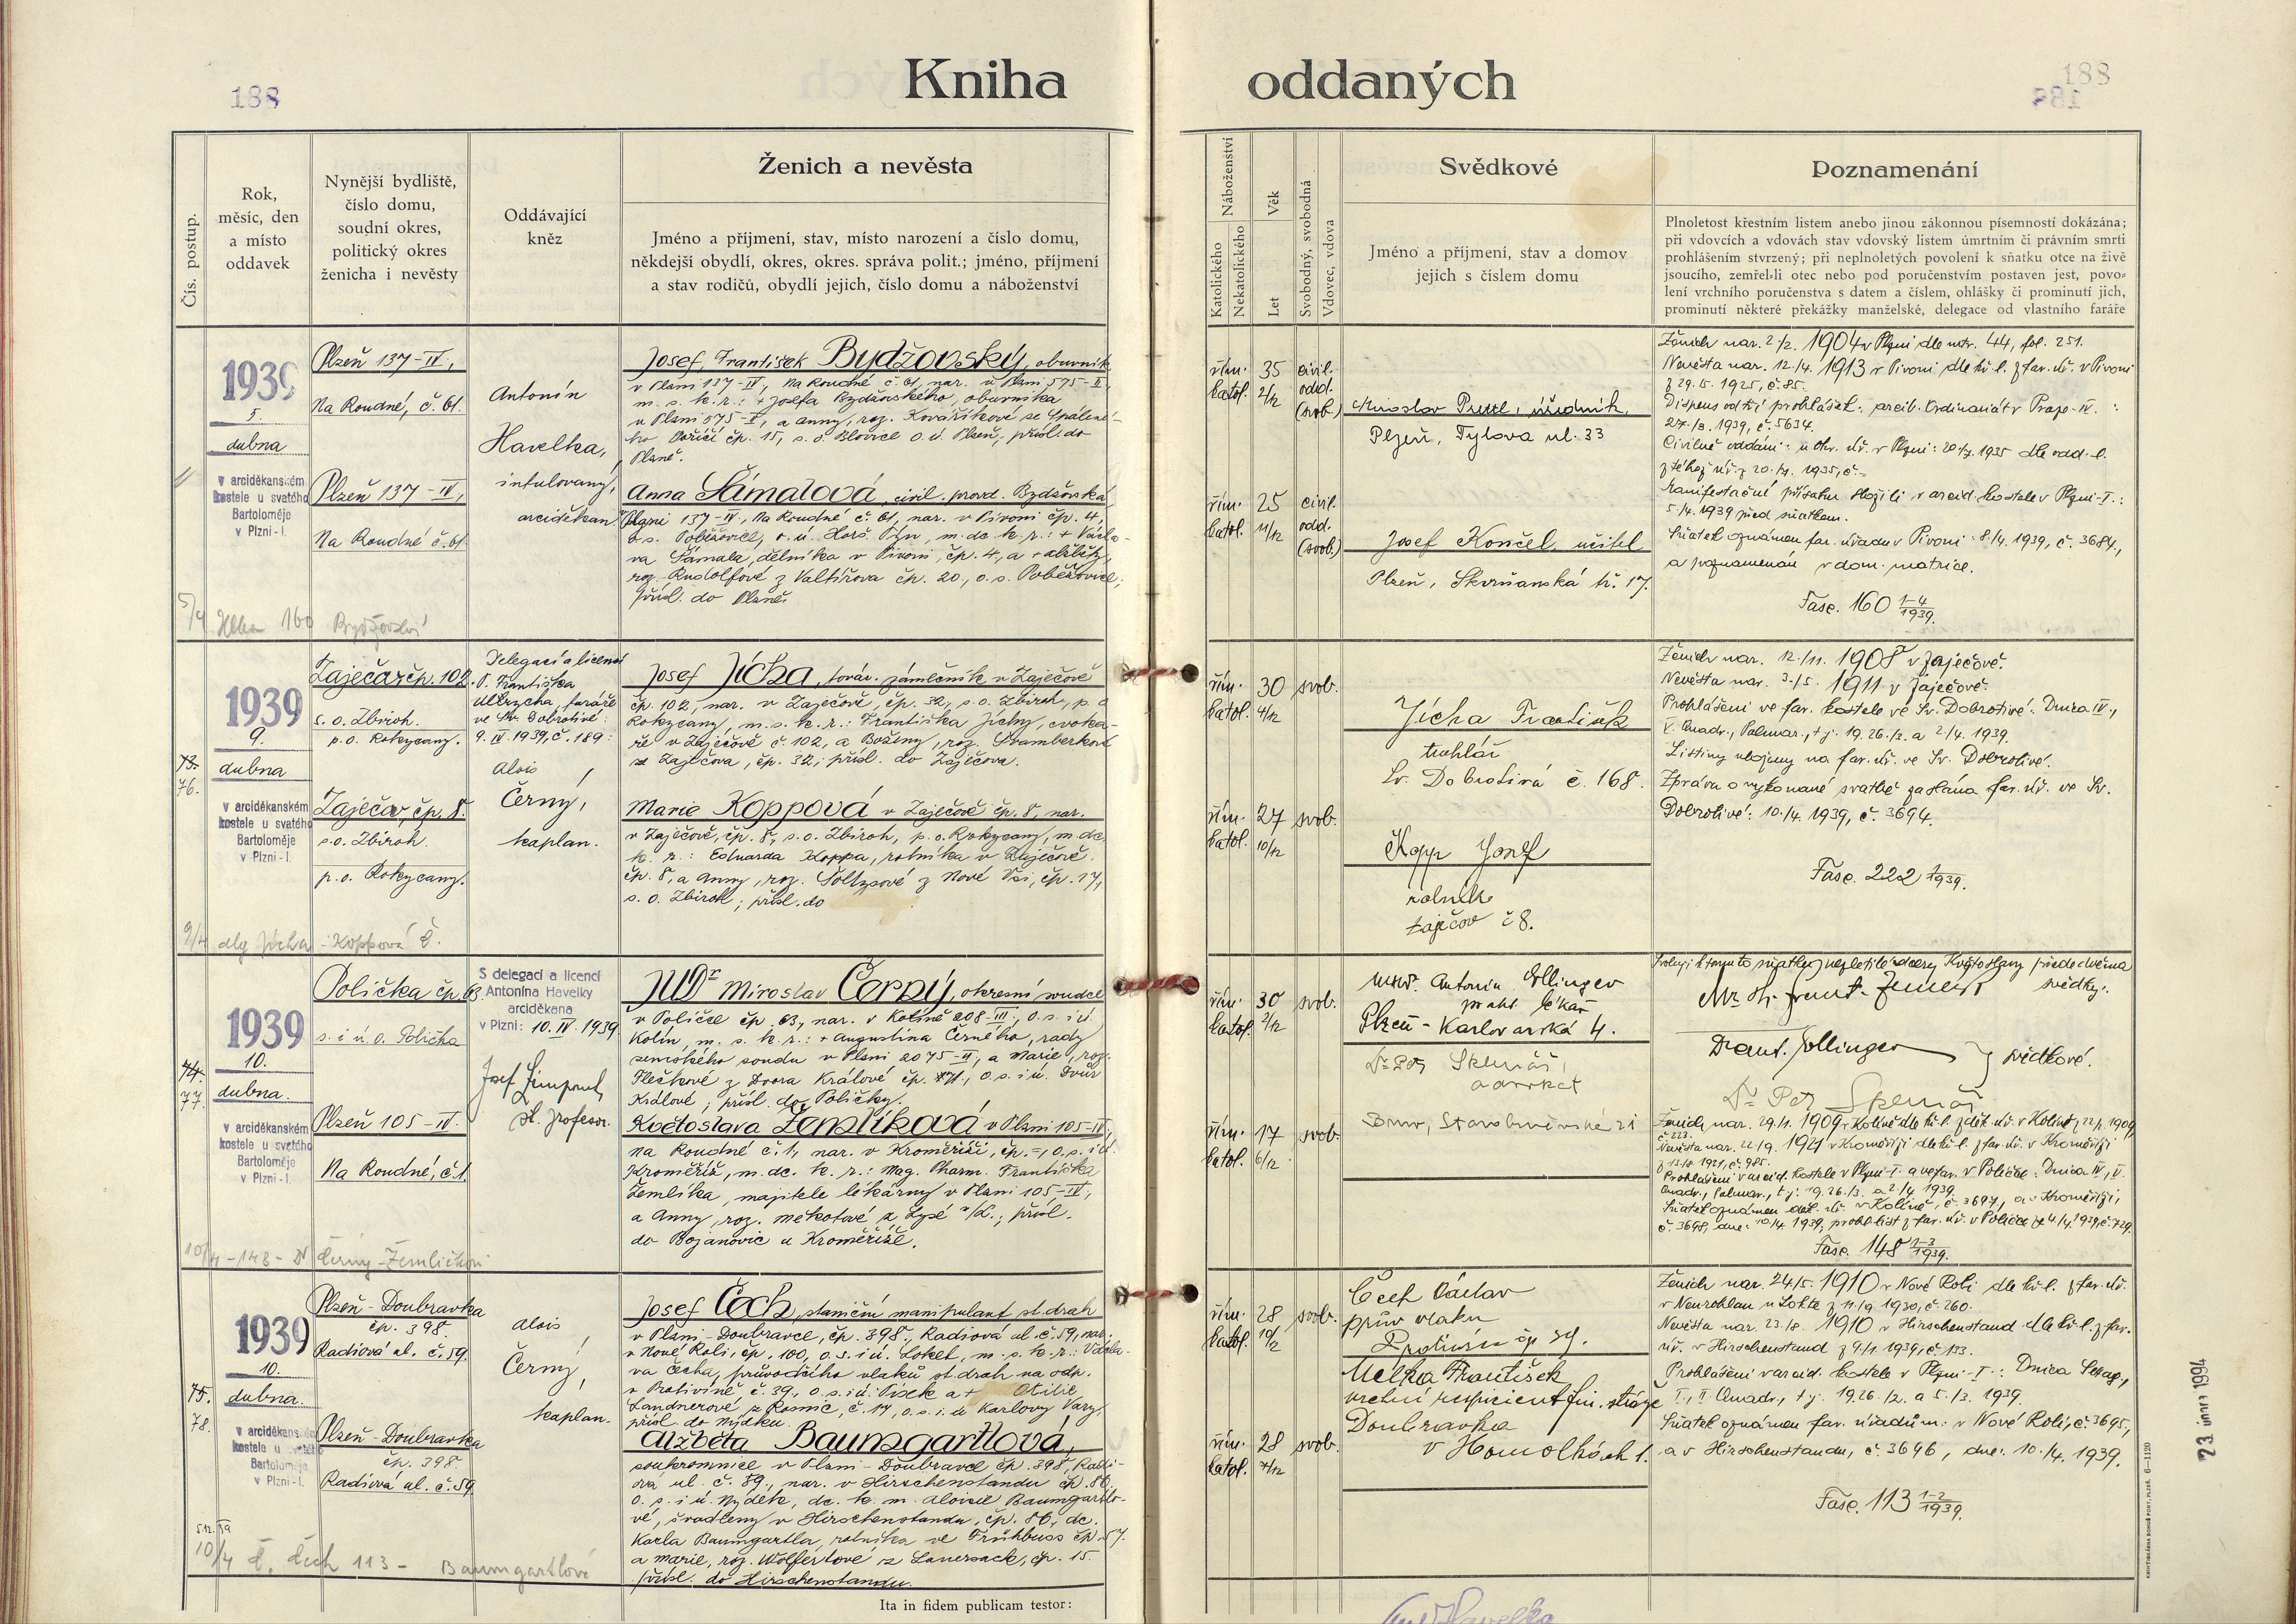 188
Kniha oddaných
188
Čís. postup.
Rok,
měsíc, den
a místo
oddavek
Nynější bydliště,
číslo domu,
soudní okres,
politický okres
ženicha i nevěsty
Oddávající
kněz
Ženich a nevěsta
Jméno a příjmení, stav, místo narození a číslo domu,
někdejší obydlí, okres, okres. správa polit.; jméno, příjmení
a stav rodičů, obydlí jejich, číslo domu a náboženství
Náboženství
Katolického
Nekatolického
Věk
Let
Svobodný, svobodná
Vdovec, vdova
Svědkové
Jméno a příjmení, stav a domov
jejich s číslem domu
Poznamenání
Plnoletost křestním listem anebo jinou zákonnou písemností dokázána;
při vdovcích a vdovách stav vdovský listem úmrtním či právním smrti
prohlášením stvrzený; při neplnoletých povolení k sňatku otce na živě
jsoucího, zemřel-li otec nebo pod poručenstvím postaven jest, povo-
lení vrchního poručenstva s datem a číslem, ohlášky či prominutí jich,
prominutí některé překážky manželské, delegace od vlastního faráře
1939
5.
dubna
v arciděkanském
kostele u svatého
Bartoloměje
v Plzni-I.
Plzeň 137-IV,
Na Roudné, č. 61.
Plzeň 137-IV,
Na Roudné č. 61.
Antonín
Havelka,
intulovaný
arciděkan.
Josef, František Bydžovský, obuvník
v Plzni 137-IV, Na Roudné č. 61, nar. v Plzni 575-II
m. s. k. r.: + Josefa Bydžovského, obuvníka
v Plzni 575-II, a Anny, roz. Kovaříkové ze Spálené-
ho Poříčí čp. 15, s. o. Blovice o. ú. Plzeň, přísl. do
Plzně.
Anna Šámalová, civil. provd. Bydžovská
v Plzni 137-IV, Na Roudné č. 61, nar. v Pivoni čp. 4,
o. s. Poběžovice, o. ú. Horš. Týn, m. dc. k. r.: + Václa-
va Šámala, dělníka v Pivoni, čp. 4, a + Alžběty,
roz. Rudolfové z Valtířova čp. 20, o. s. Poběžovice;
přísl. do Plzně.
řím. 35 civil.
katol. 2/12 odd.
(svob.)
řím. 25 civil.
katol. 11/12 odd.
(svob.)
Miroslav
Plzeň, Tylova ul. 33
Josef Končel, učitel
Plzeň, Skvrňanská tř. 17.
Ženich nar. 2/2. 1904 v Plzni dle mtr. 44, fol. 251.
Nevěsta nar. 12/4. 1913 v Pivoni dle kř. l. z far. úř. v Pivoni
z 29. 5. 1925, č. 85.
Dispens od tří prohlášek: arcib. Ordinariát v Praze-IV. :
27/3. 1939, č. 5634.
Civilně oddáni: u okr. úř. v Plzni: 20/7. 1935 dle odd. l.
z téhož úř. z 20./7. 1935, č.-
Manifestační přísahu složili v arcid. kostele v Plzni-I.:
5./4. 1939 před sňatkem.
Sňatek oznámen far. úřadu v Pivoni: 8/4. 1939, č. 3684.,
a poznamenán v dom. matrice.
Fasc. 160 1-4/1939.
5/4 160 Bydžovský
1939
9.
dubna
73.
76.
v arciděkanském
kostele u svatého
Bartoloměje
v Plzni-I.
Zaječov čp. 102.
s. o. Zbiroh.
p. o. Rokycany.
Zaječov, čp. 8.
s. o. Zbiroh.
p. o. Rokycany.
Delegací a licencí
P. Františka
Ulrycha, faráře
ve Sv. Dobrotivé:
9. IV. 1939, č. 189:
Alois
Černý,
kaplan.
Josef Jícha, továr. zámečník v Zaječově
čp. 102, nar. v Zaječově, čp. 32, s. o. Zbiroh, p. o
Rokycany, m. s. k. r.: Františka Jíchy, cvoka-
ře v Zaječově č. 102, a Boženy, roz. Švamberkové
z Zaječova, čp. 32; přísl. do Zaječova.
Marie Koppová v Zaječově čp. 8, nar.
v Zaječově, čp. 8, s. o. Zbiroh, p. o. Rokycany, m. dc.
k. r.: Eduarda Koppa, rolníka v Zaječově,
čp. 8, a Anny, roz. Šoltysové z Nové Vsi, čp. 17,
s. o. Zbiroh; přísl. do
řím. 30 svob.
katol. 4/12
řím. 27 svob.
katol. 10/12
Jícha František
truhlář
Sv. Dobrotivá č. 168.
Kopp Josef
rolník
Zaječov č 8.
Ženich nar. 12./11. 1908 v Zaječově.
Nevěsta nar. 3./5. 1911 v Zaječově.
Prohlášení ve far. kostele ve Sv. Dobrotivé: Dnica IV.,
V. Quadr., Palmar., t. j. 19. 26./3. a 2./4. 1939.
Listiny uloženy na far. úř. ve Sv. Dobrotivé.
Zpráva o vykonané svatbě zaslána far. úř. ve Sv.
Dobrotivé: 10./4. 1939, č. 3694.
Fasc. 222 1/1939.
9/4 dlg Jícha - Koppová Č.
1939
10.
dubna.
74.
77.
v arciděkanském
kostele u svatého
Bartoloměje
v Plzni-I.
Polička čp. 63
s. i ú. o. Polička
Plzeň 105-IV.
Na Roudné, č. 1.
S delegací a licencí
Antonína Havelky
arciděkana
v Plzni: 10. IV. 1939
Josef
st. profesor.
JUDr Miroslav Černý, okresní soudce
v Poličce čp. 63, nar. v Kolíně 208-III, o. s. i ú.
Kolín, m. s. k. r.: + Augustina Černého, rady
zemského soudu v Plzni 2075-II, a Marie, roz.
Flečkové z Dvora Králové čp. 771, o. s. i ú. Dvůr
Králové; přísl. do Poličky.
Květoslava Zemlíková v Plzni 105-IV,
na Roudné č. 1, nar. v Kroměříži, čp. =, o. s. i ú.
Kroměříž, m. dc. k. r.: Mag. Pharm. Františka
Žemlíka, majitele lékárny v Plzni 105-IV,
a Anny, roz. Mekotové z Lysé n/L.; přísl.
do Bojanovic u Kroměříže.
řím. 30 svob.
katol. 2/12
řím. 17 svob.
katol. 6/12
MUDr. Antonín Ellinger
prakt. lékař
Plzeň - Karlovarská 4.
Dr Petr Sklenář,
advokát
Brno, Starobrněnská 21
Svoluji k tomuto sňatku nezletilé dcery Květoslavy přede dvěma
svědky:
svědkové.
Ženich nar. 29./1. 1909 v Kolíně dle kř. l. z děk. úř. v Kolíně z 22/2. 1909,
č. 223.
Nevěsta nar. 22./9. 1921 v Kroměříži dle kř. l. z far. úř. v Kroměříži
z 13./8. 1921, č. 985.
Prohlášení v arcid. kostele v Plzni-I. a ve far. v Poličce: Dnica IV., V.
Quadr., Palmar., t. j. 19. 26./3. a 2./4. 1939.
Sňatek oznámen děk. úř. v Kolíně, č. 3697, a v Kroměříži,
č. 3698, dne: 10/4. 1939, prohl. list z far. úř. v Poličce ze 4./4. 1939, č. 729.
Fasc. 148 1-3/1939.
10/4 - 148 - Černý - Žemličková
1939
10.
dubna.
75.
78.
v arciděkanském
kostele u svatého
Bartoloměje
v Plzni-I.
Plzeň - Doubravka
čp. 398.
Radiová ul. č. 59.
Plzeň - Doubravka
čp. 398.
Radiová ul. č. 59.
Alois
Černý,
kaplan.
Josef Čech, staniční manipulant st. drah
v Plzni - Doubravce, čp. 398, Radiová ul. č. 59, nar.
v Nové Roli, čp. 100, o. s. i ú. Loket, m. s. k. r.: Václa-
va Čecha, průvodčího vlaků st. drah na odp.
v Protivíně č. 39, o. s. i ú. Písek a + Otilie
Landnerové z Rosnic, č. 17, o. s. i ú Karlovy Vary;
přísl. do Nýdku.
Alžběta Baumgartlová,
soukromnice v Plzni - Doubravce čp. 398, Radio-
vá ul. č. 59, nar. v Hirschenstandu čp. 86,
o. s. i ú. Nýdek, dc. k. m. Aloisie Baumgartlo-
vé, švadleny v Hirschenstandu, čp. 86, dc.
Karla Baumgartla, rolníka ve Frühbuss čp. 57.
a Marie, roz. Wölfertové z Sauersack, čp. 15.
přísl. do Hirschenstandu.
řím. 28 svob.
katol. 10/12
řím. 28 svob.
katol. 7/12
Čech Václav
prův vlaku
Protivín čp 39.
Melka František
vrchní respicient fin. stráže
Doubravka
v Homolkách 1.
Ženich nar. 24/5. 1910 v Nové Roli dle kř. l. z far. úř.
v Neurohlau u Lokte z 11./9. 1930, č. 260.
Nevěsta nar. 23./8. 1910 v Hirschenstand dle kř. l. z far.
úř. v Hirschenstand z 9./1. 1939, č. 133.
Prohlášení v arcid. kostele v Plzni-I.: Dnica Sexag.,
I., II. Quadr., t. j. 19. 26. /2. a 5./3. 1939.
Sňatek oznámen far. úřadům: v Nové Roli, č. 3695,
a v Hirschenstandu, č. 3696, dne: 10./4. 1939.
Fasc. 113 1-2/1939.
10/4 Č. Čech 113 - Baumgartlová
Ita in fidem publicam testor:
23. únor 1994